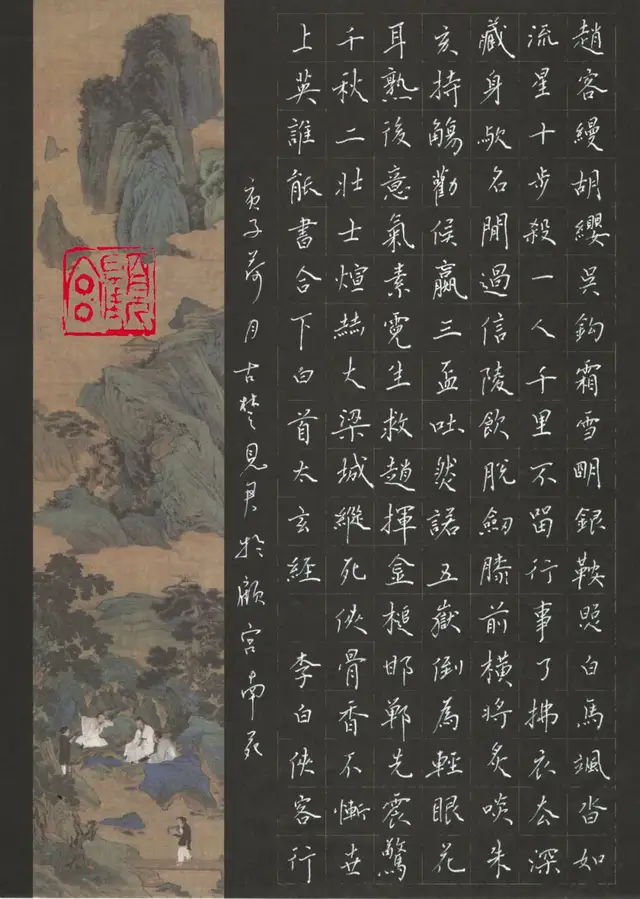 趙客縵胡纓吳鉤霜雪明銀鞍照白馬颯沓如
流星十步殺一人千里不留行事了拂衣去深
藏身欤名閒過信陵飲脫劍膝前橫將炙啖朱
亥持觴勸侯嬴三盃吐然諾五嶽倒為輕眼花
耳熟後意氣素霓生救趙揮金槌邯鄲先震驚
千秋二壯士煊赫大梁城縱死俠骨香不慚世
上英誰能書合下白首太玄經 李白俠客行
庚子荷月古楚見於顧宮南苑
顧宮